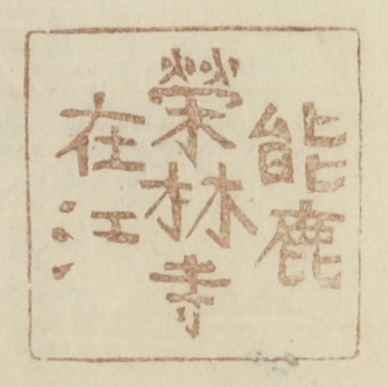 能鹿
榮林寺
在江